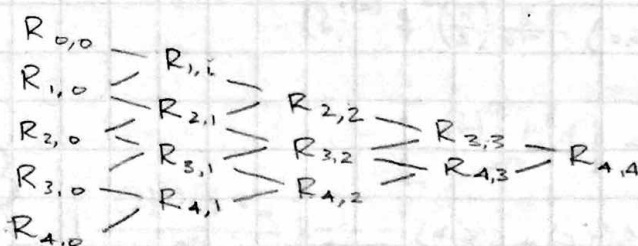 R 0,0
R 1,0
R 2,0
R 3,0
R 4,0
R 1,1
R 2,1
R 3,1
R 4,1
R 2,2
R 3,2
R 4,2
R 3,3
R 4,3
R 4,4